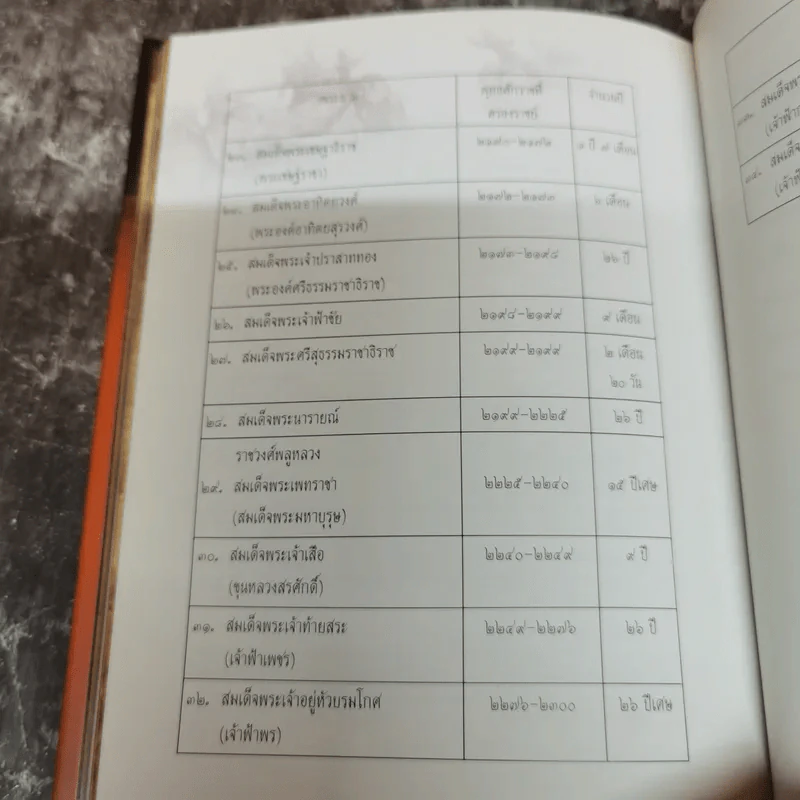 พุทธศักราชที่ จำนวนปี
ครองราชย์
๒๓. สมเด็จพระเชษฐาธิราช ๒๑๗๑-๒๑๗๒ ๑ ปี ๗ เดือน
(พระเชษฐราชา)
๒๔. สมเด็จพระอาทิตยวงศ์ ๒๑๗๒-๒๑๗๓ เดือน
(พระองค์อาทิตยสุรวงศ์)
๒๕. สมเด็จพระเจ้าปราสาททอง ๒๑๗๓-๒๑๙๘ ๒๖ ปี
(พระองค์ศรีธรรมราชาธิราช)
๒๖. สมเด็จพระเจ้าฟ้าชัย ๒๑๙๘-๒๑๙๙ ๙ เดือน
๒๗. สมเด็จพระศรีสุธรรมราชาธิราช ๒๑๙๙-๒๑๙๙ ๒ เดือน
๒๐ วัน
๒๘. สมเด็จพระนารายณ์ ๒๑๙๙-๒๒๒๕ ๒๖ ปี
ราชวงศ์พลูหลวง
๒๙. สมเด็จพระเพทราชา ๒๒๒๕-๒๒๔๐ ๑๕ ปีเศษ
(สมเด็จพระมหาบุรุษ)
๓๐. สมเด็จพระเจ้าเสือ ๒๒๔๐-๒๒๔๙ ๙ ปี
(ขุนหลวงสรศักดิ์)
๓๑. สมเด็จพระเจ้าท้ายสระ ๒๒๔๙-๒๒๗๖ ๒๖ ปี
(เจ้าฟ้าเพชร)
๓๒. สมเด็จพระเจ้าอยู่หัวบรมโกศ ๒๒๗๖-๒๓๐๐ ๒๖ ปีเศษ
(เจ้าฟ้าพร)